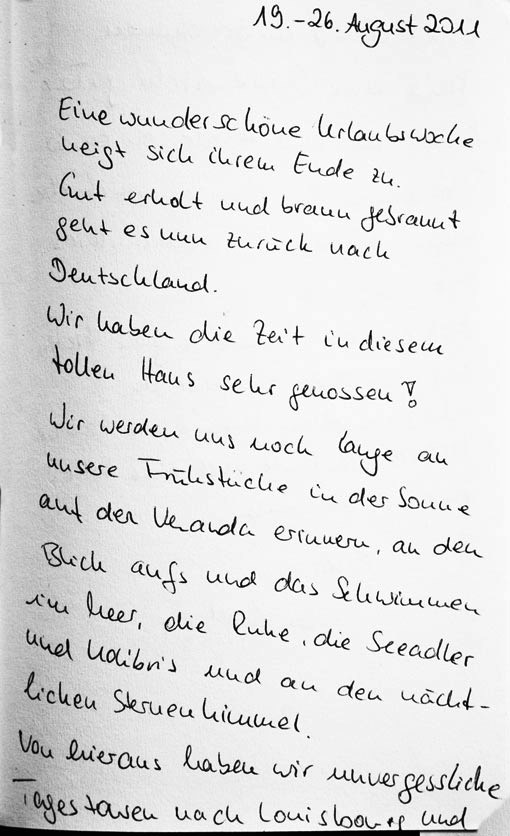 19.-26. August 2011
Eine wunderschöne Urlaubswoche
neigt sich ihrem Ende zu.
Gut erholt und braun gebrannt
geht es nun zurück nach
Deutschland.
Wir haben die Zeit in diesem
tollen Haus sehr genossen!
Wir werden uns noch lange an
unsere Frühstücke in der Sonne
auf der Veranda erinnern, an den
Blick aufs und das Schwimmen
im Meer, die Ruhe, die Seeadler
und Kolibris und an den nächt-
lichen Sternenhimmel.
Von hieraus haben wir unvergessliche
Tagestouren nach Louisbourg und